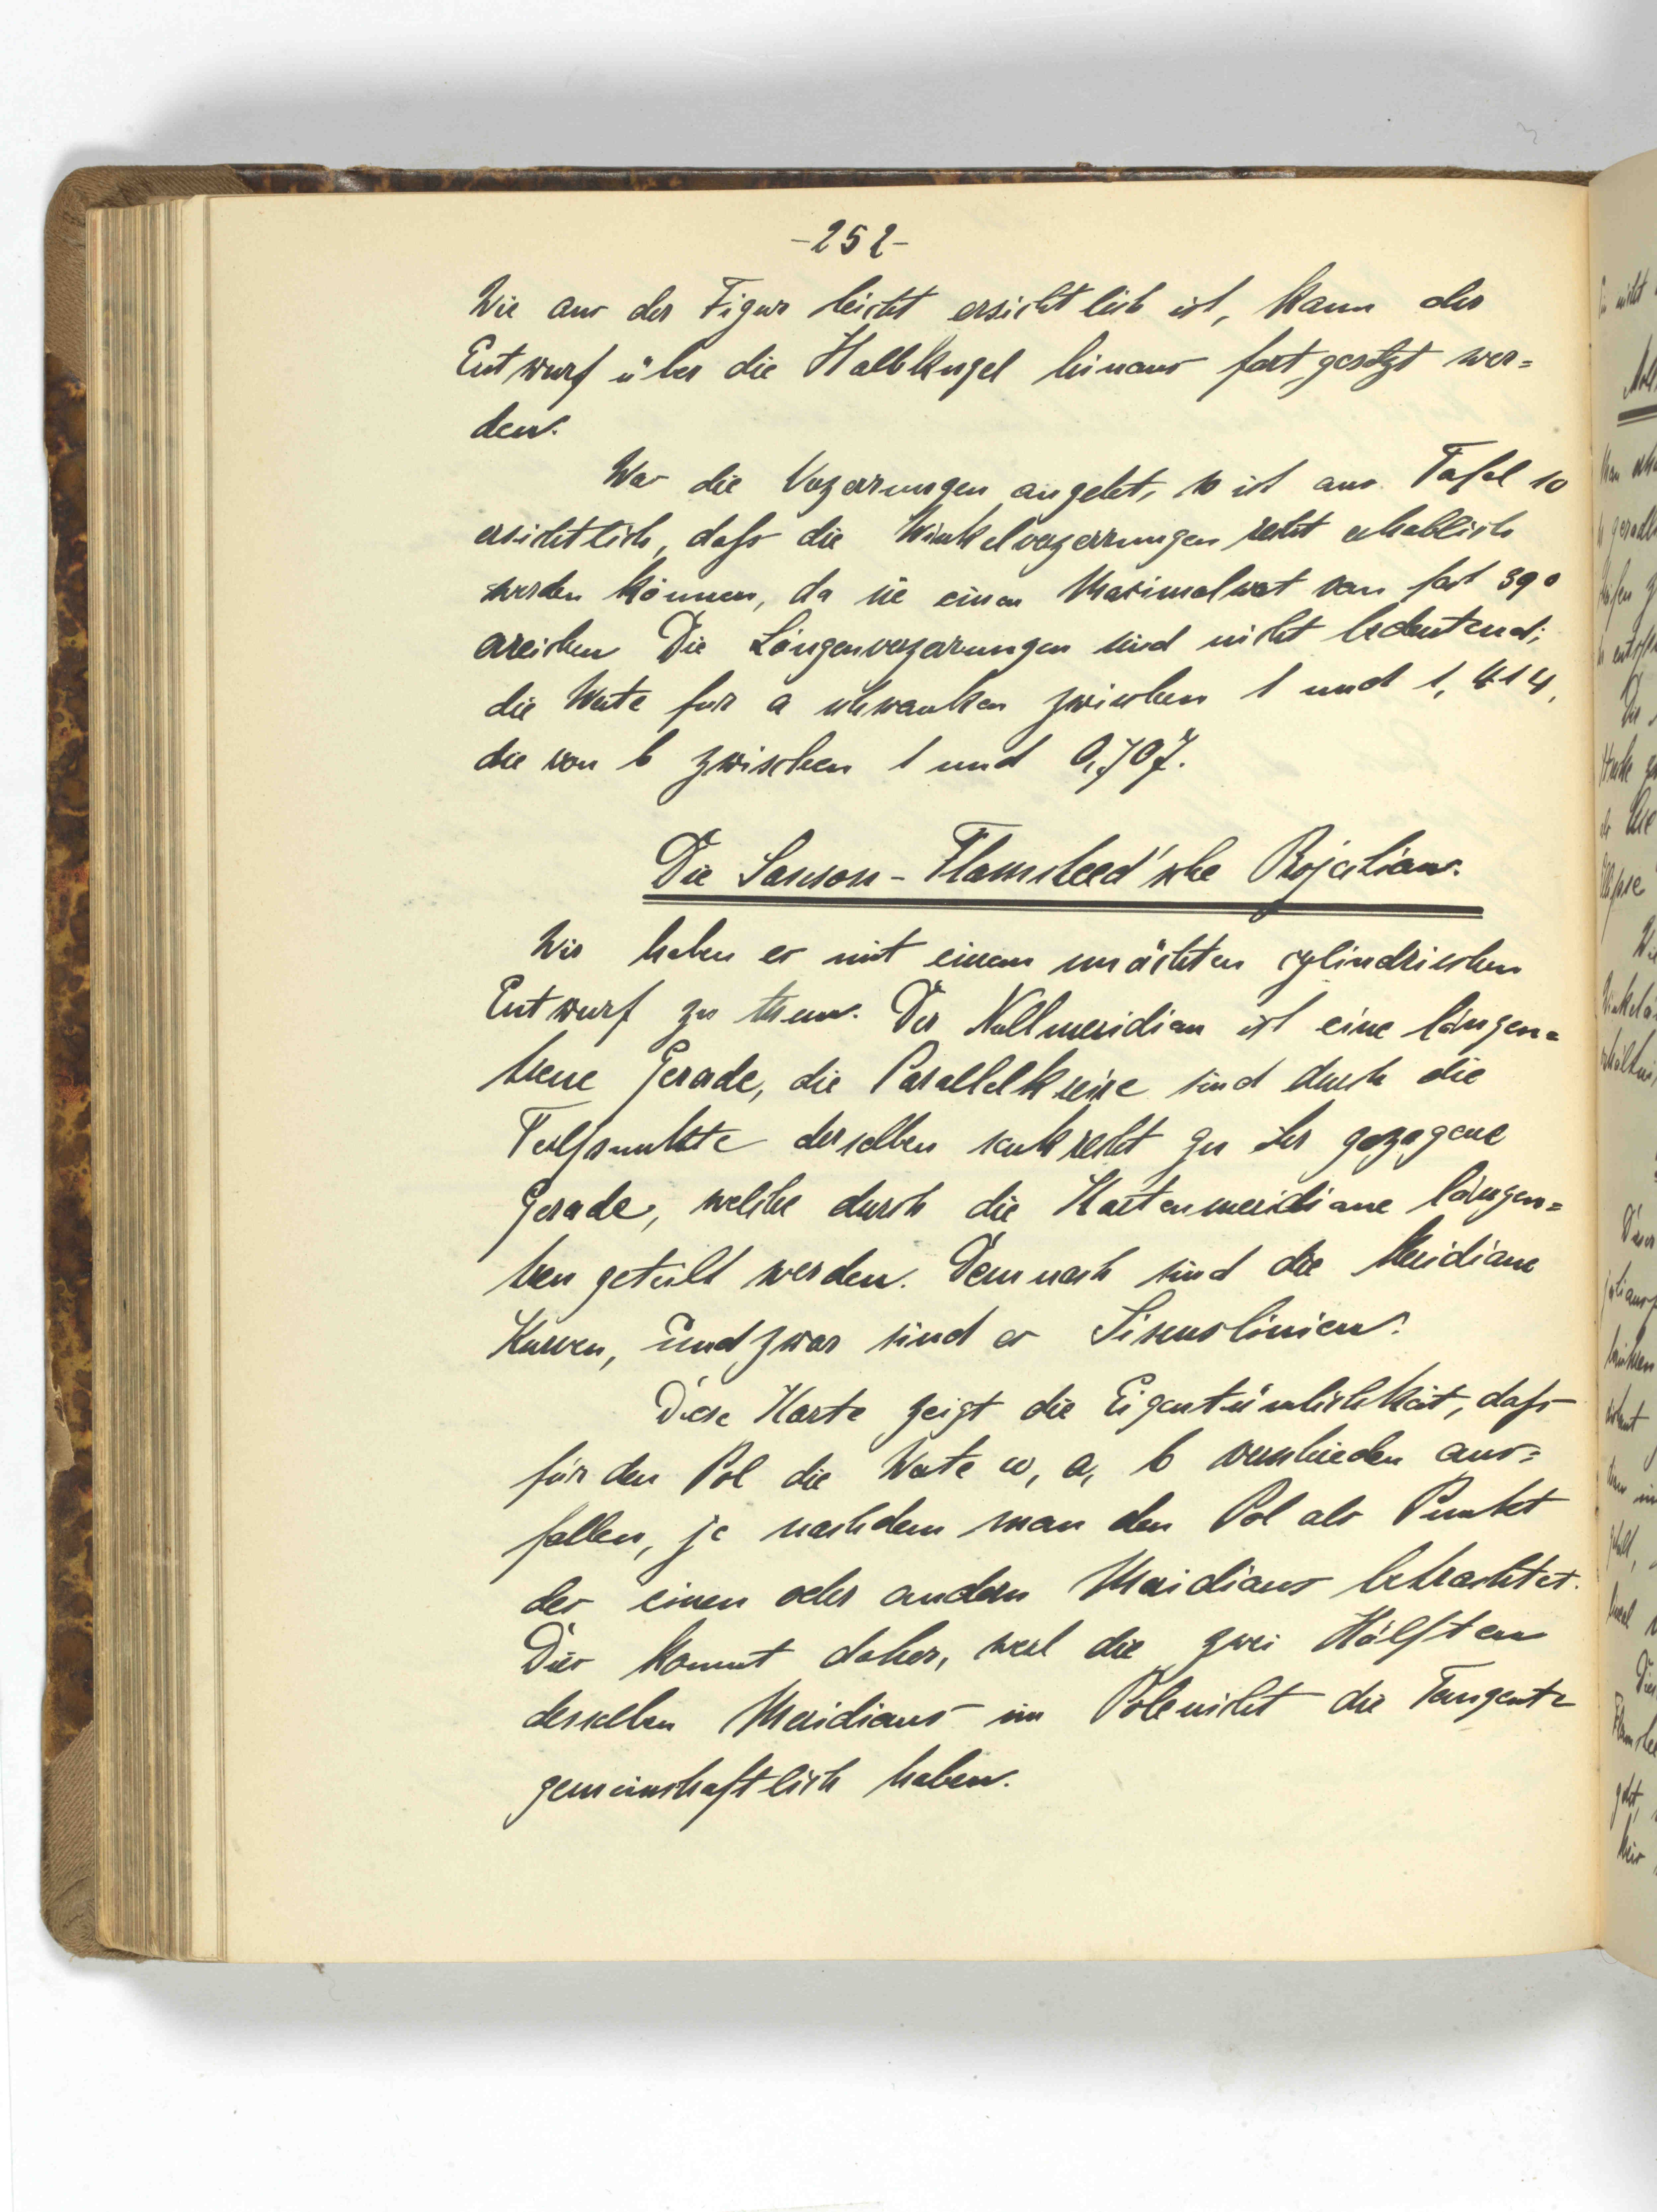 -252-
Wie aus der Figur leicht ersichtlich ist, kann der
Entwurf über die Halbkugel hinaus fortgesetzt wer=
den.
Was die Verzerrungen angeht, so ist aus Tafel 10
ersichtlich, dass die Winkelverzerrungen recht erheblich
werden können, da sie einen Maximalwert von fast 39°
erreichen Die Längenverzerrungen sind nicht bedeutend;
die Werte für a schwanken zwischen 1 und 1,414,
die von b zwischen 1 und 0,707.
Die Sanson-Flamsteed'sche Projection.
Wir haben es mit einem unächten cylindrischen
Entwurf zu thun. Der Nullmeridian ist eine längen=
treue Gerade, die Parallelkreise sind durch die
Teilpunkte derselben senkrecht zu ihr gezogene
Gerade, welche durch die Kartenmeridiane längen=
treu geteilt werden. Demnach sind die Meridiane
Kurven, und zwar sind es Sinuslinien.
Diese Karte zeigt die Eigentümlichkeit, dass
für den Pol die Werte ω, a, b verschieden aus=
fallen, je nachdem man den Pol als Punkt
des einen oder andern Meridians betrachtet.
Dies kommt daher, weil die zwei Hälften
desselben Meridians im Pole nicht die Tangente
gemeinschaftlich haben.